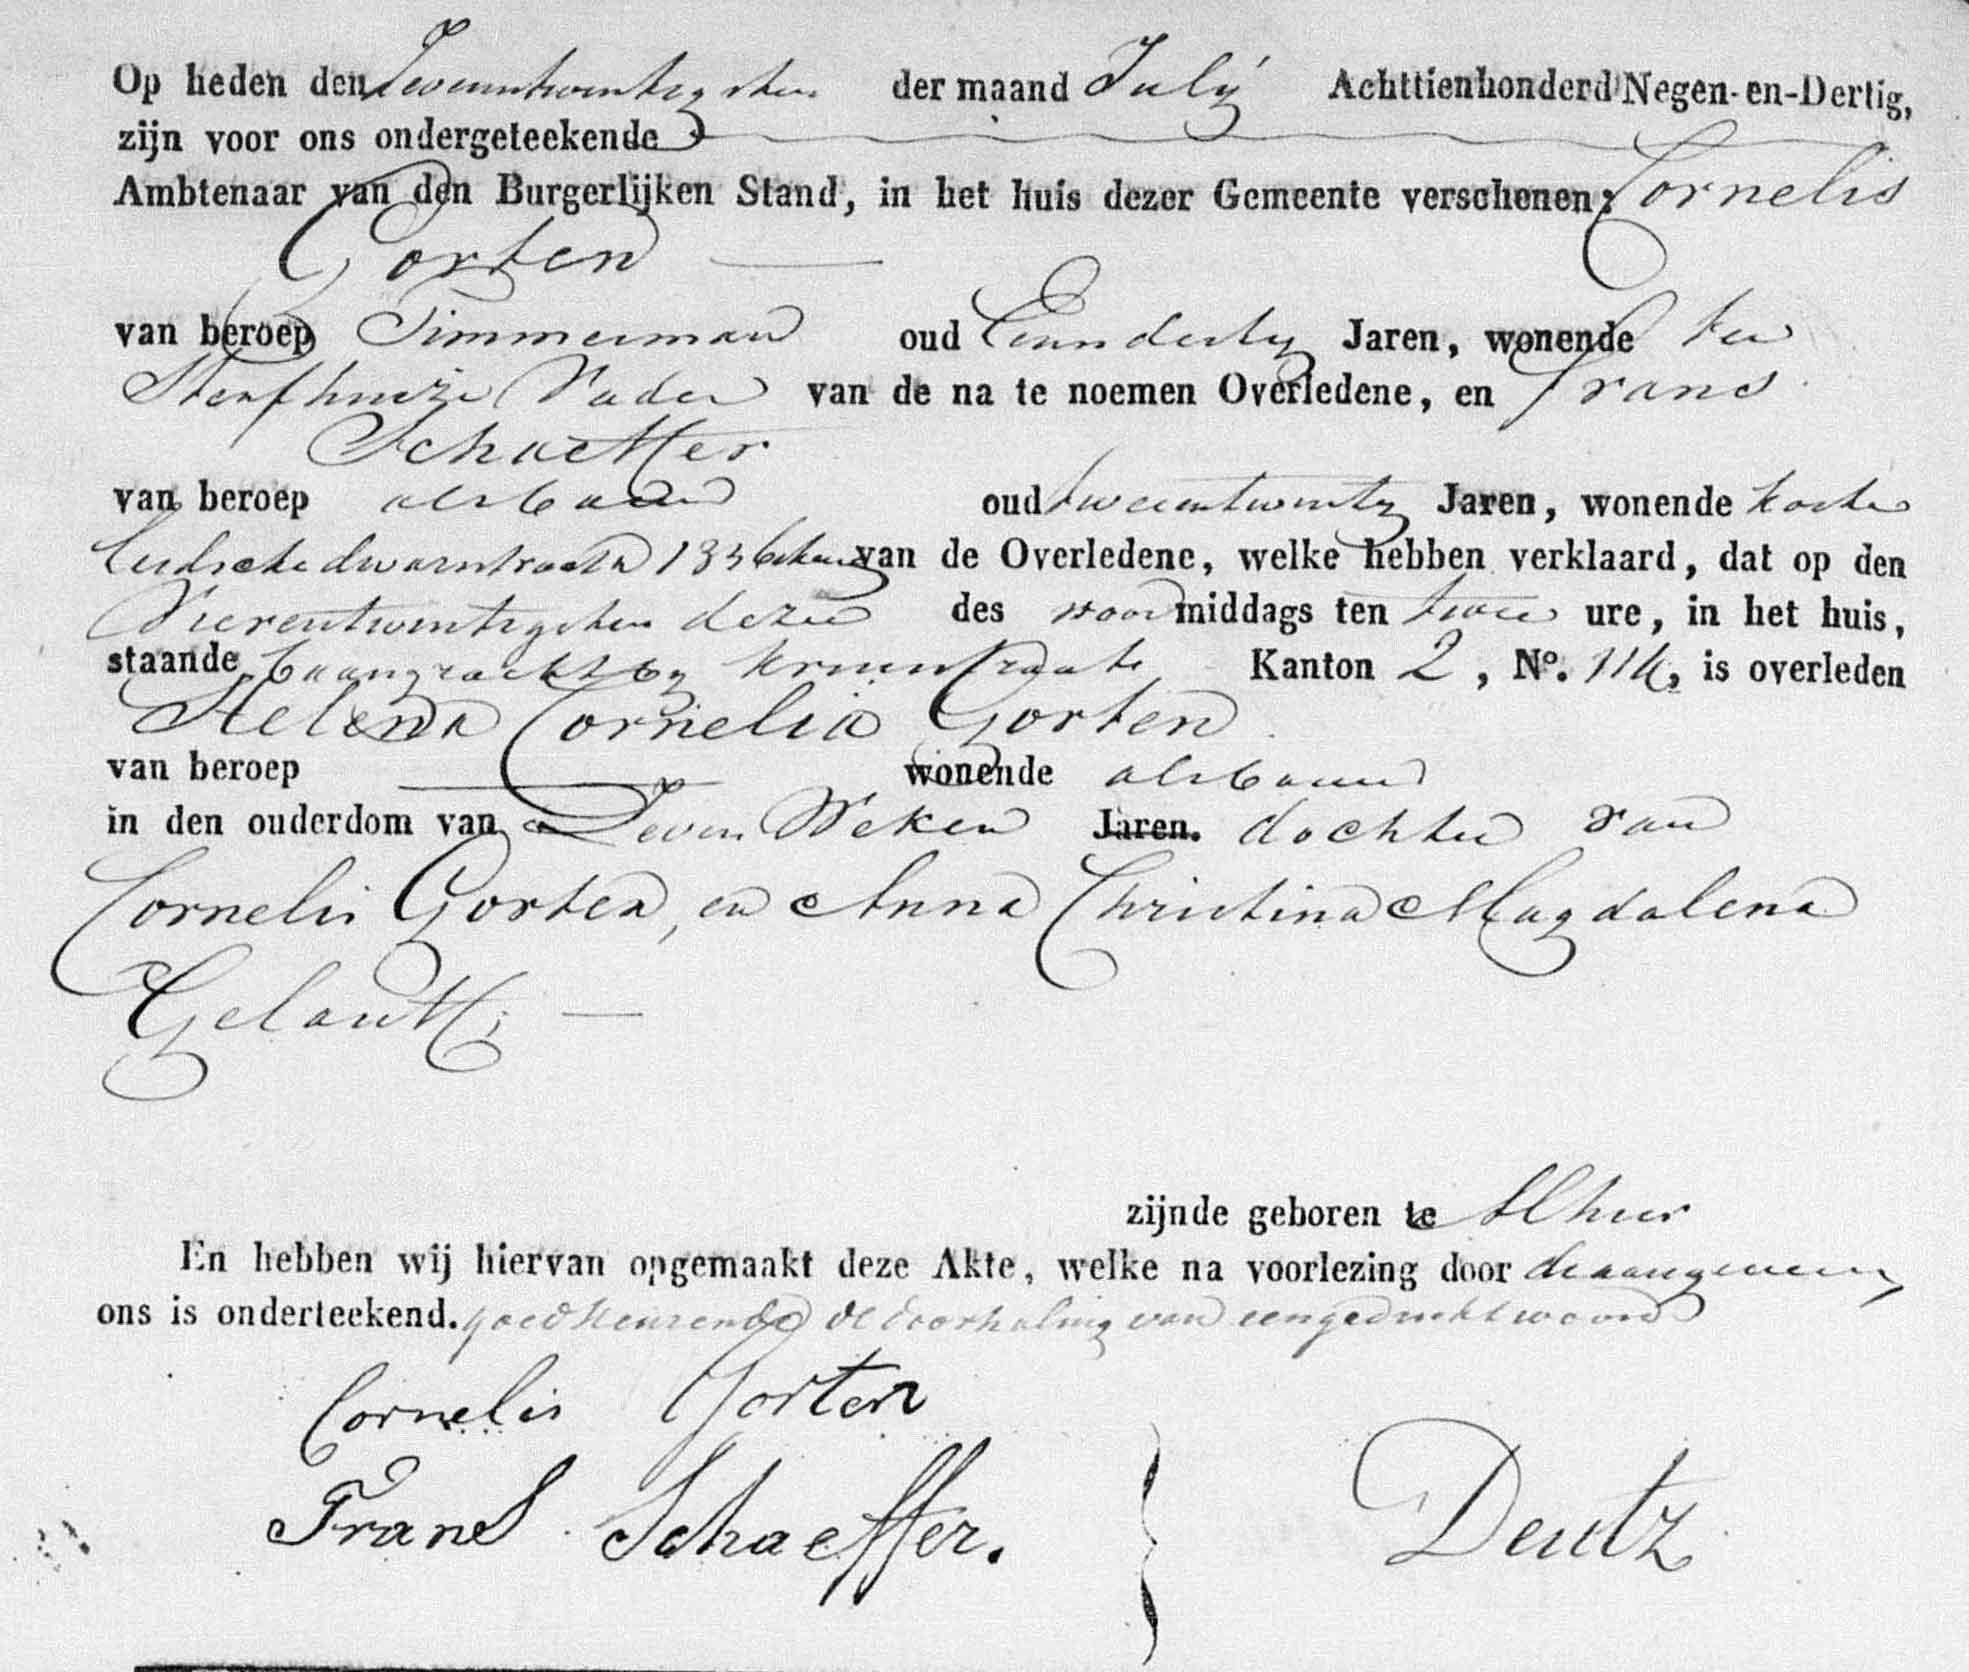 Op heden den Zevenentwintigsten der maand Julij Achttienhonderd Negen-en-Dertig,
zijn voor ons ondergeteekende
Ambtenaar van den Burgerlijken Stand, in het huis dezer Gemeente verschenen: Cornelis
Gorten
van beroep Timmerman oud Eenendertig Jaren, wonende ten
Sterfhuize Vader van de na te noemen Overledene, en Frans
Schaeffer
van beroep als boven oud tweeentwintig Jaren, wonende korte
Leidsche dwarsstraat 1336 van de Overledene, welke hebben verklaard, dat op den
Vierentwintigsten dezer des voormiddags ten twee ure, in het huis,
staande Baangracht bij Kanton 2, No. 114, is overleden
Helena Cornelia Gorten
van beroep wonende als boven
in den ouderdom van Zeven Weken Jaren. dochter van
Cornelis Gorten, en Anna Christina Magdalena
zijnde geboren te Alhier
En hebben wij hiervan opgemaakt deze Akte, welke na voorlezing door de aangevers en
ons is onderteekend. goedkeurende de doorhaling van een gedrukt woord
Cornelis Gorten
Frans Schaeffer. Deutz